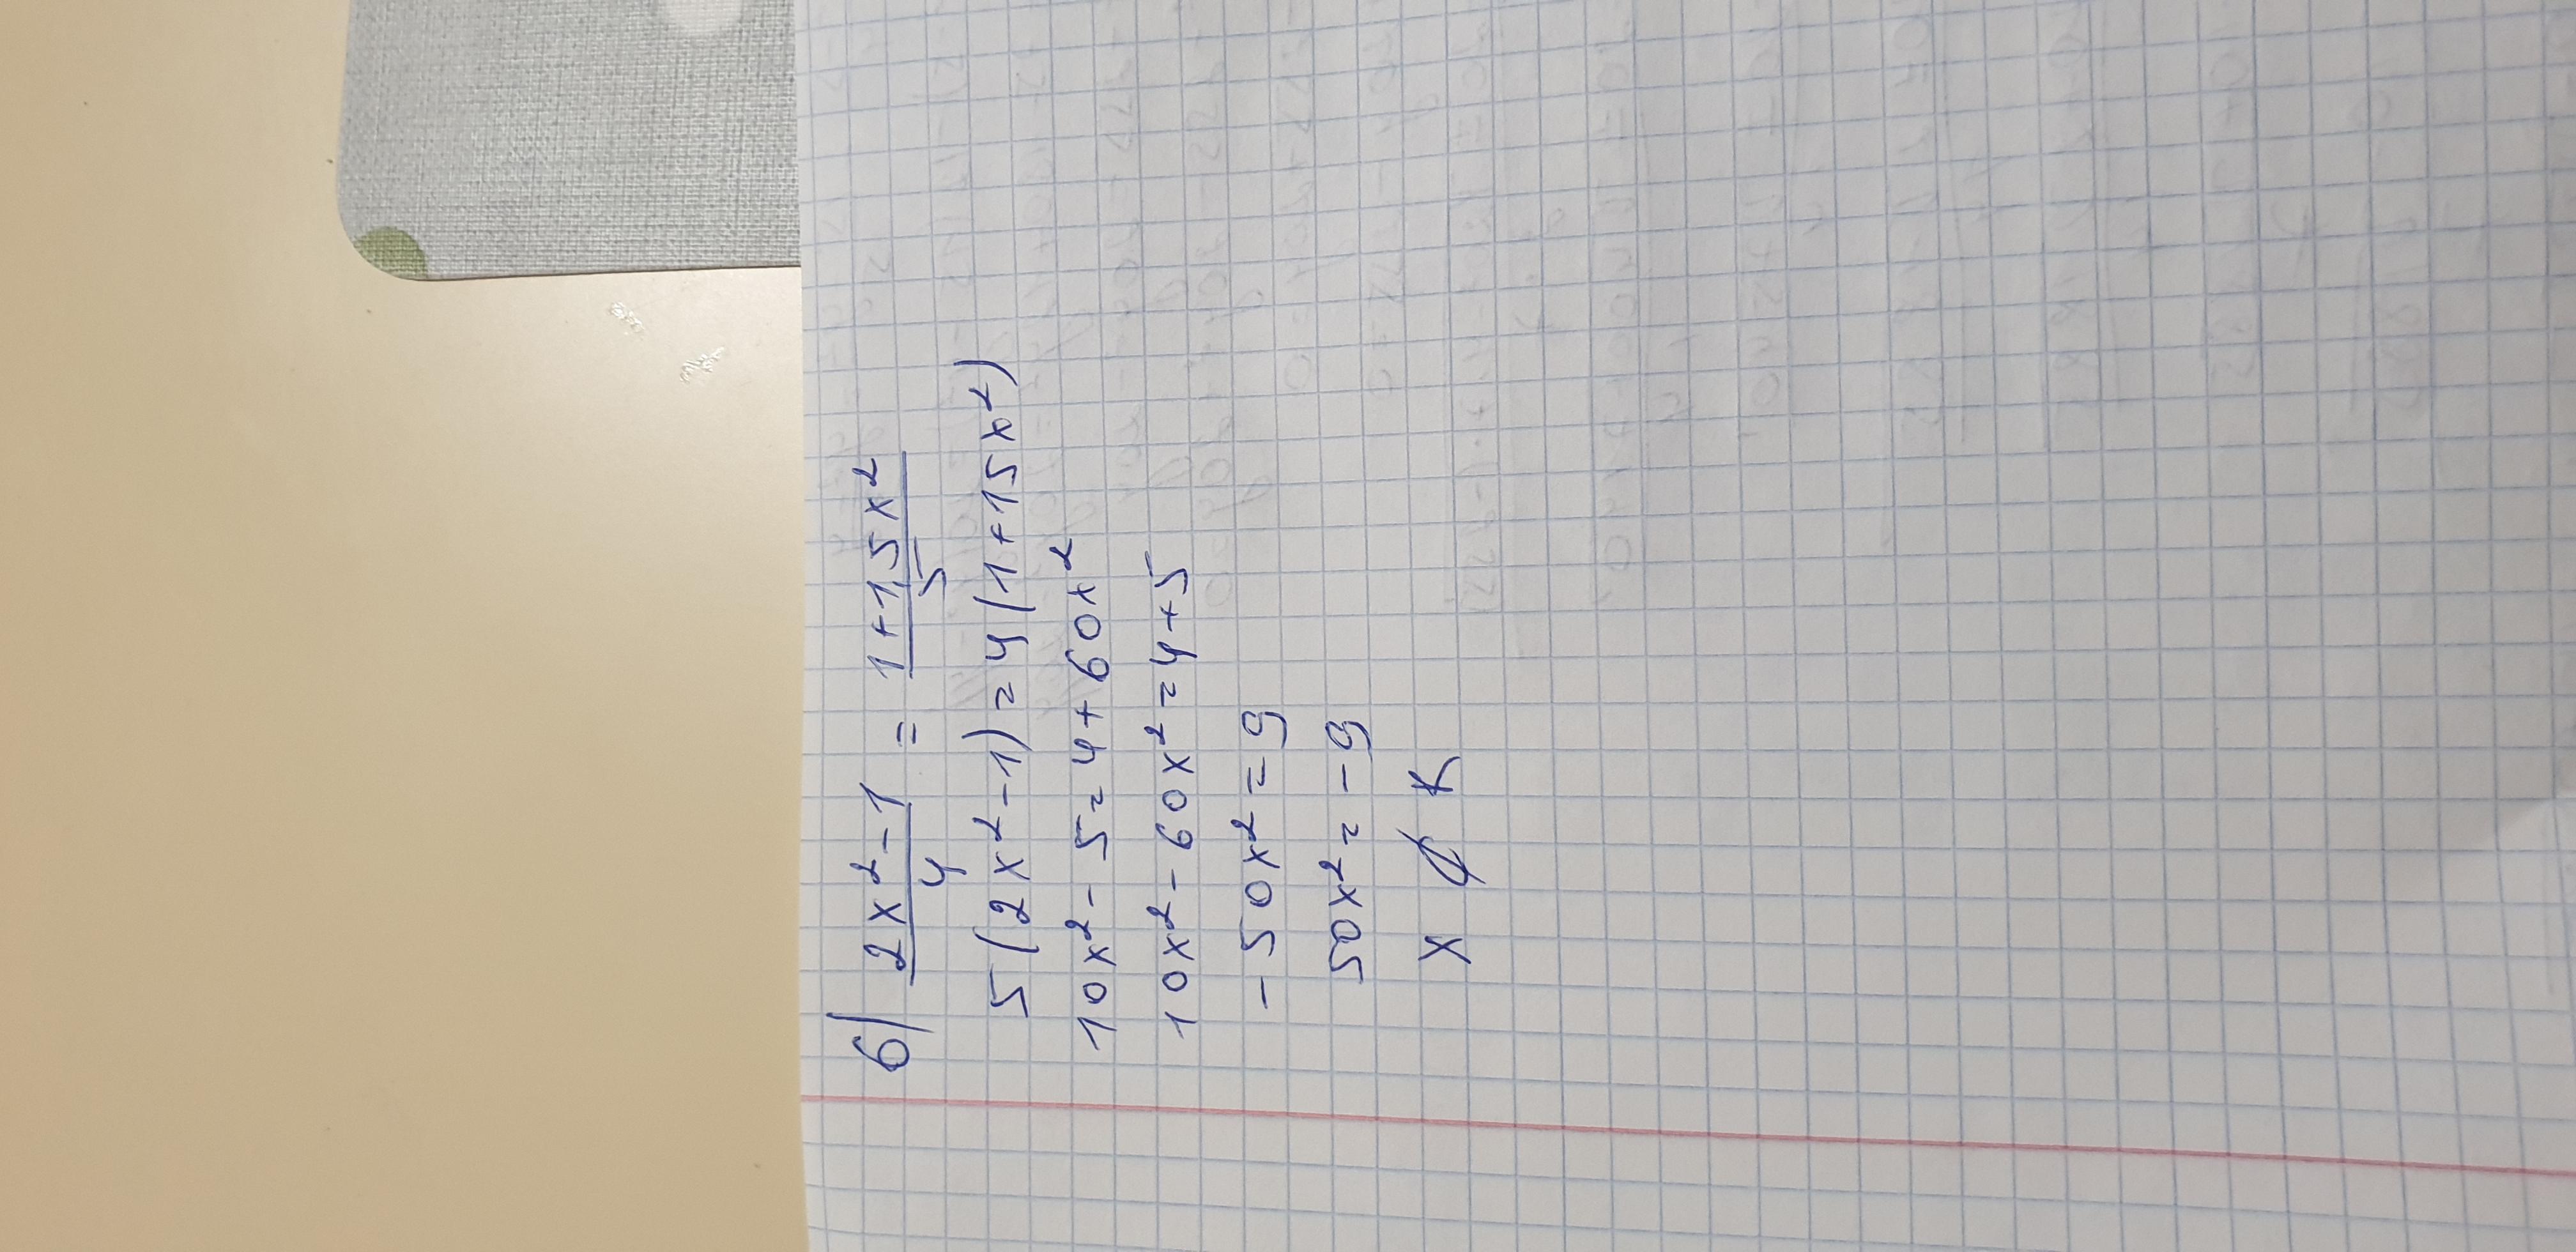 6) (2x²-1)/4 = (1+15x²)/5
5(2x²-1)=4(1+15x²)
10x²-5=4+60x²
10x²-60x²=4+5
-50x²=9
50x²=-9
x ∉ R